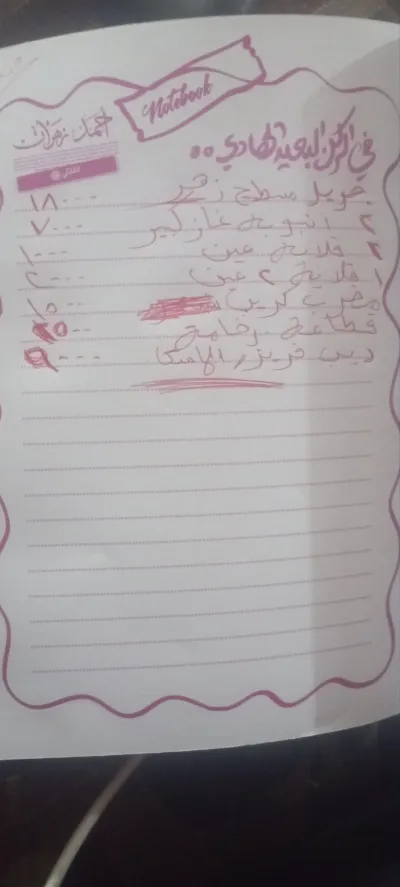 Notebook
أحمد زهران
في الركن البعيد الهادي ..
جريل سطح زهر ١٨٠٠٠
٢ انبوبة غاز كبير ٧٠٠٠
٢ قلاية عين ١٠٠٠
١ قلاية ٢ عين ٢٠٠٠
مضرب كريب ١٥٠٠
قطاعة رخامة ٢٥٠٠
ديب فريزر الاسكا ٩٠٠٠